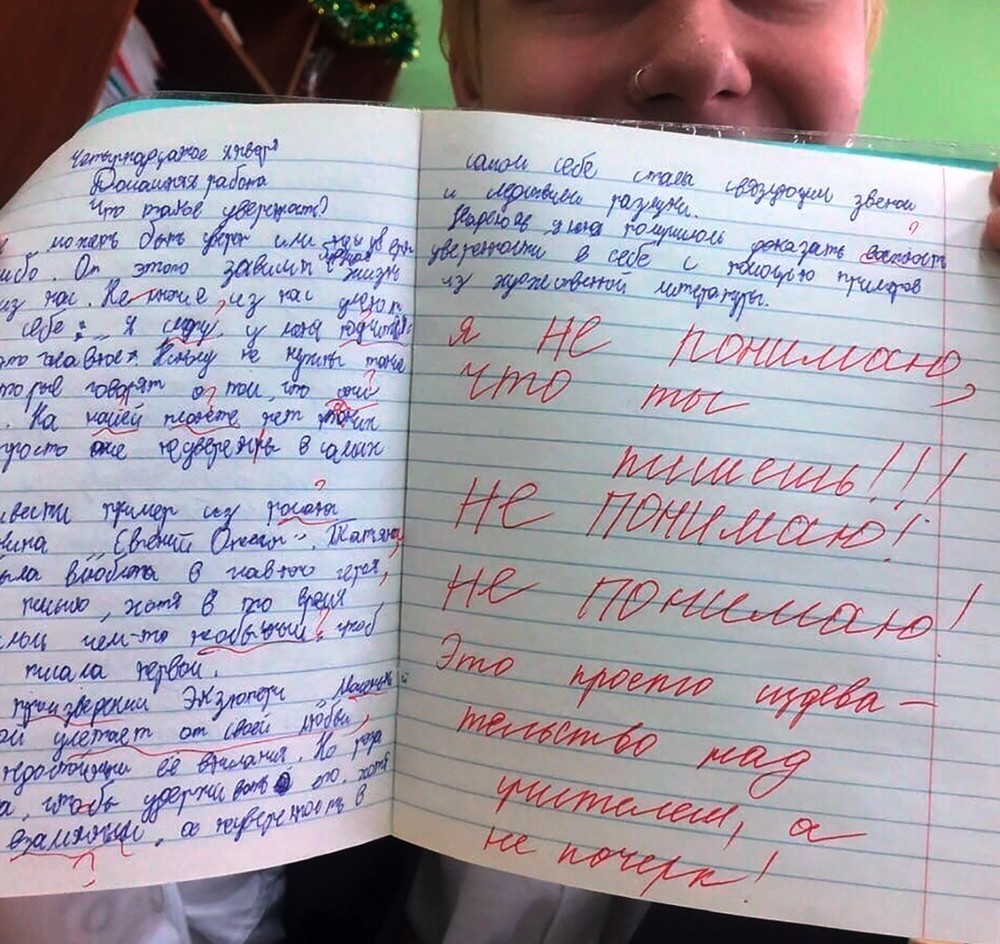 Четырнадцатое января
Домашняя работа
Что такое уверенность?
может быть уверен или
либо. От этого зависит жизнь
из нас. Не многие, из нас
себе: „Я смогу, у меня получится
это главное". Никому не нужны
говорят о том, что они
. На нашей планете нет таких
просто они не уверенны в самих
привести пример из романа
„Евгений Онегин". Татьяна
была влюблена в главного героя,
письмо, хотя в то время
чем-то необычным, чтоб
писала первой.
произведении Экзюпери „Маленький
улетает от своей любви,
её внимания. Но роза
а, чтобы удерживать его, хотя
взаимны, а неуверенность в
самом себе стала связующем звеном
и мотивом разлуки.
Надеюсь, у меня получилось доказать
уверенности в себе с помощью примеров
из художественной литературы.
я не понимаю,
что ты
пишешь!!!
Не понимаю!
не понимаю!
Это просто издева-
тельство над
учителем, а
не почерк!